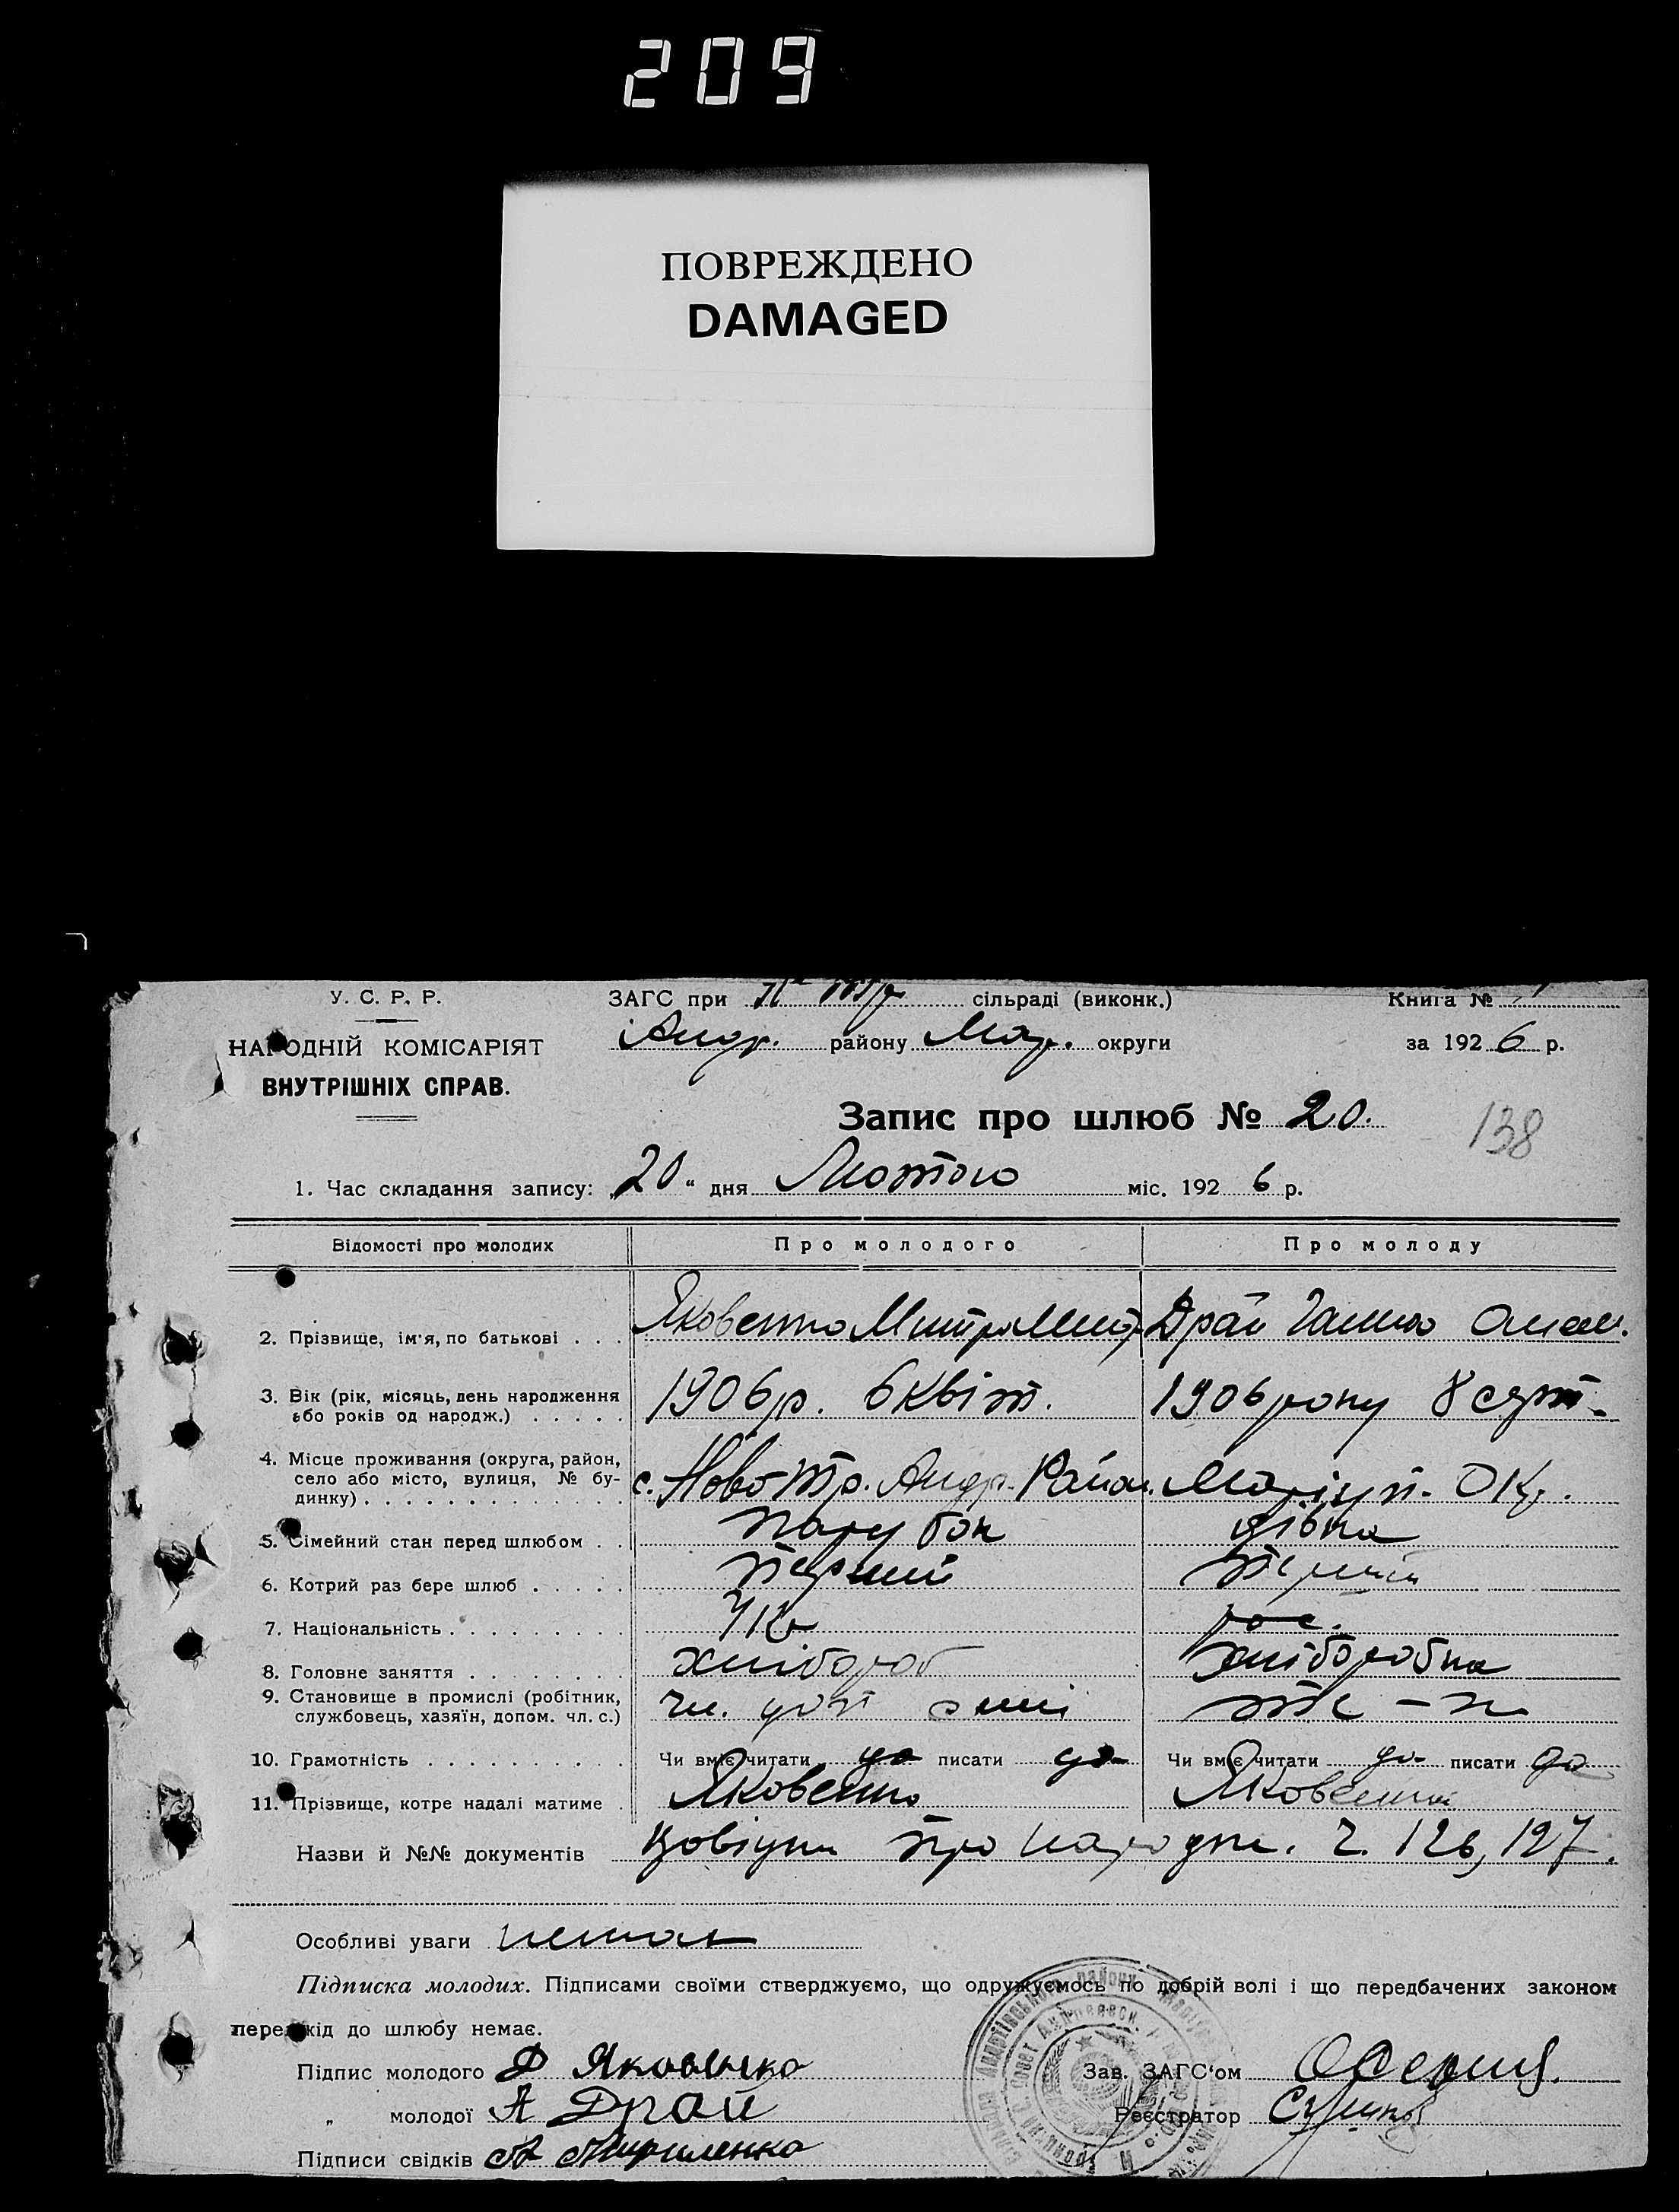 209
ПОВРЕЖДЕНО
DAMAGED
У. С. Р. Р.
ЗАГС при сільраді (виконк.)
Книга №
НАРОДНІЙ КОМІСАРІЯТ
Андр. району Мар. округи
за 1926 р.
ВНУТРІШНІХ СПРАВ.
Запис про шлюб № 20.
138
1. Час складання запису: „20“ дня Лютого міс. 1926 р.
Відомості про молодих Про молодого Про молоду
2. Прізвище, ім'я, по батькові . . . Яковенко Митро Мит. Драй Ганна
3. Вік (рік, місяць, день народження або років од народж.) . . . . . 1906 р. 6 квіт. 1906 року 8 серп.
4. Місце проживання (округа, район, село або місто, вулиця, № будинку) . . . с. Ново-Тр. Андр. Район. Маріуп. Окр.
5. Сімейний стан перед шлюбом . . парубок дівка
6. Котрий раз бере шлюб . . . . . перший перший
7. Національність . . . . . . . . . Укр рос.
8. Головне заняття . . . . . . . . хлібороб хліборобка
9. Становище в промислі (робітник, службовець, хазяїн, допом. чл. с.) чл. доп сімї
10. Грамотність . . . . . . . . . . Чи вміє читати да писати да Чи вміє читати да писати да
11. Прізвище, котре надалі матиме . Яковенко Яковенко
Назви й №№ документів довідки про народж. Ч. 126, 127.
Особливі уваги немає
Підписка молодих. Підписами своїми стверджуємо, що одружуємось по добрій волі і що передбачених законом
перешкід до шлюбу немає.
Підпис молодого Д Яковенко Зав. ЗАГС'ом
„ молодої А Драй Реєстратор
Підписи свідків А Кириленко